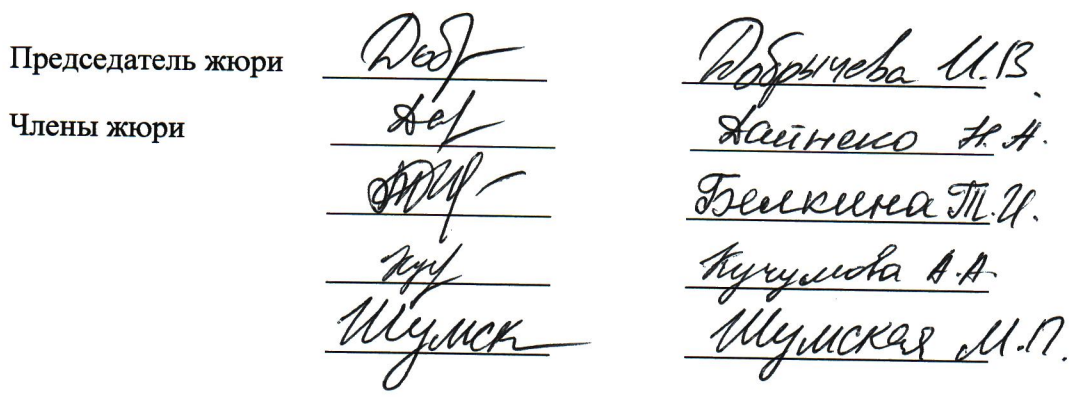 Председатель жюри Добр Добрычева И.В.
Члены жюри Дайнеко Н.А.
Белкина Т.И.
Куч Кучумова А.А.
Шумск Шумская М.П.